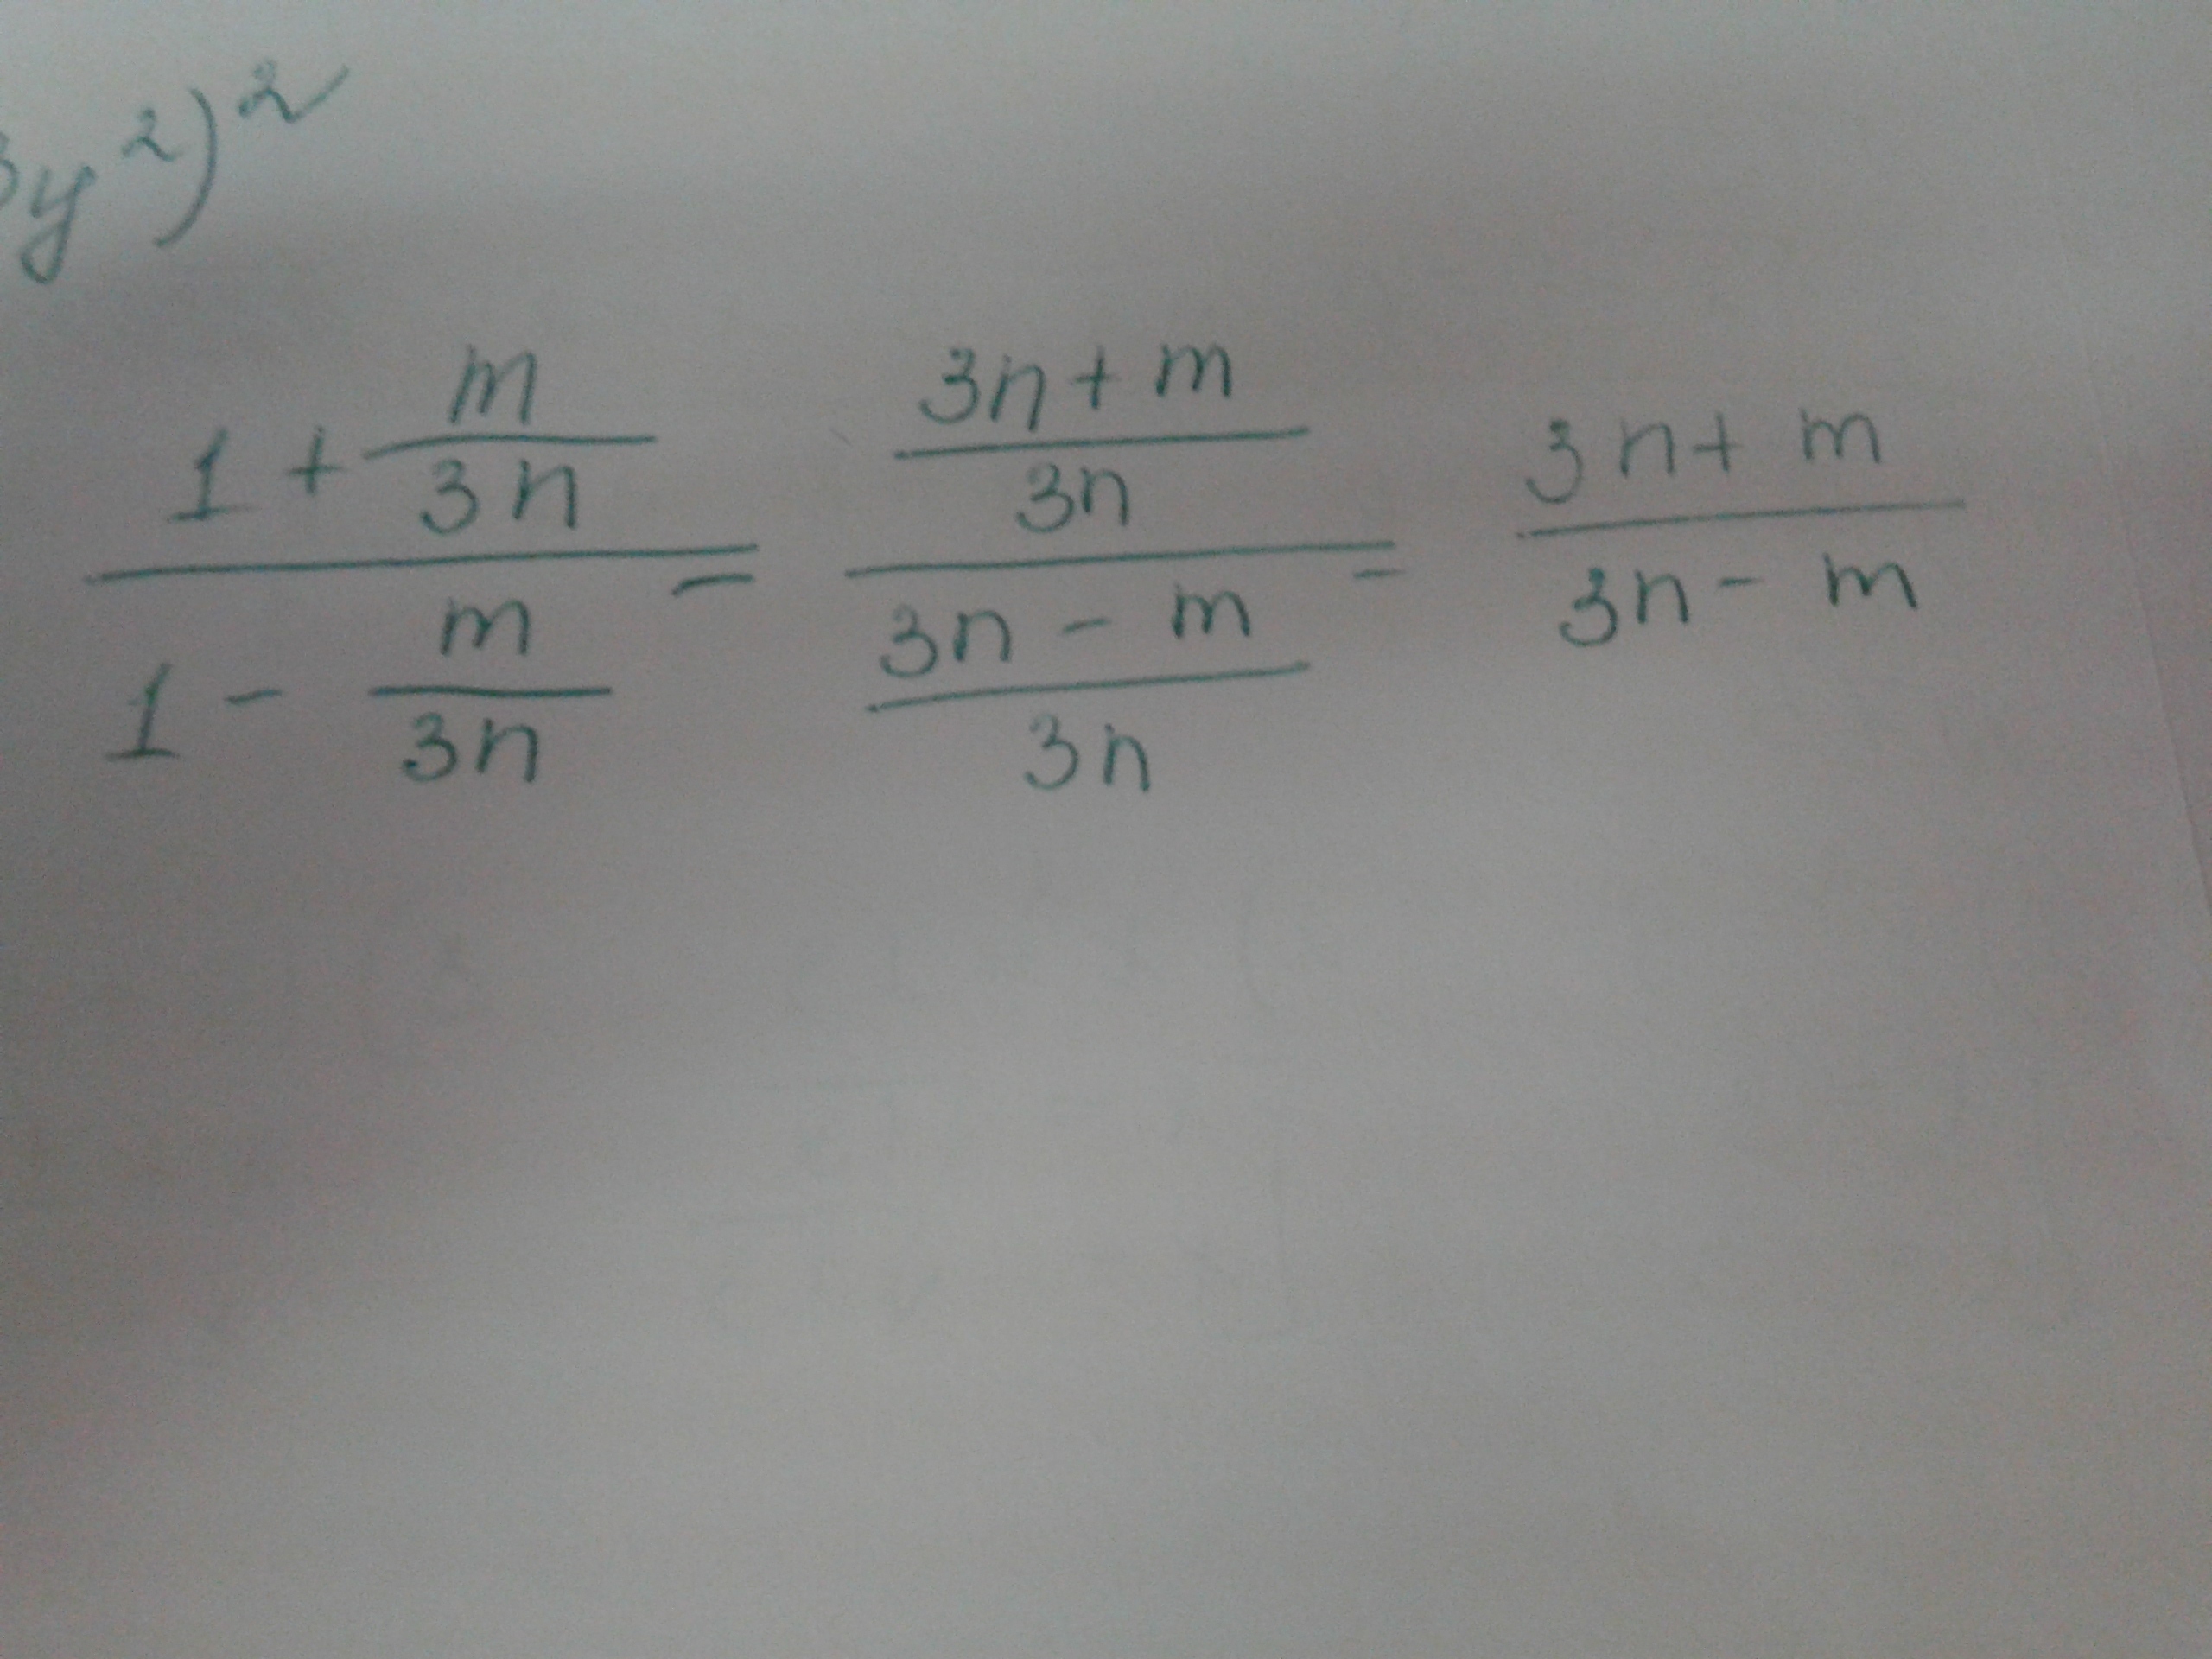 3y²)²
1 + m/3n / 1 - m/3n = 3n + m/3n / 3n - m/3n = 3n + m / 3n - m